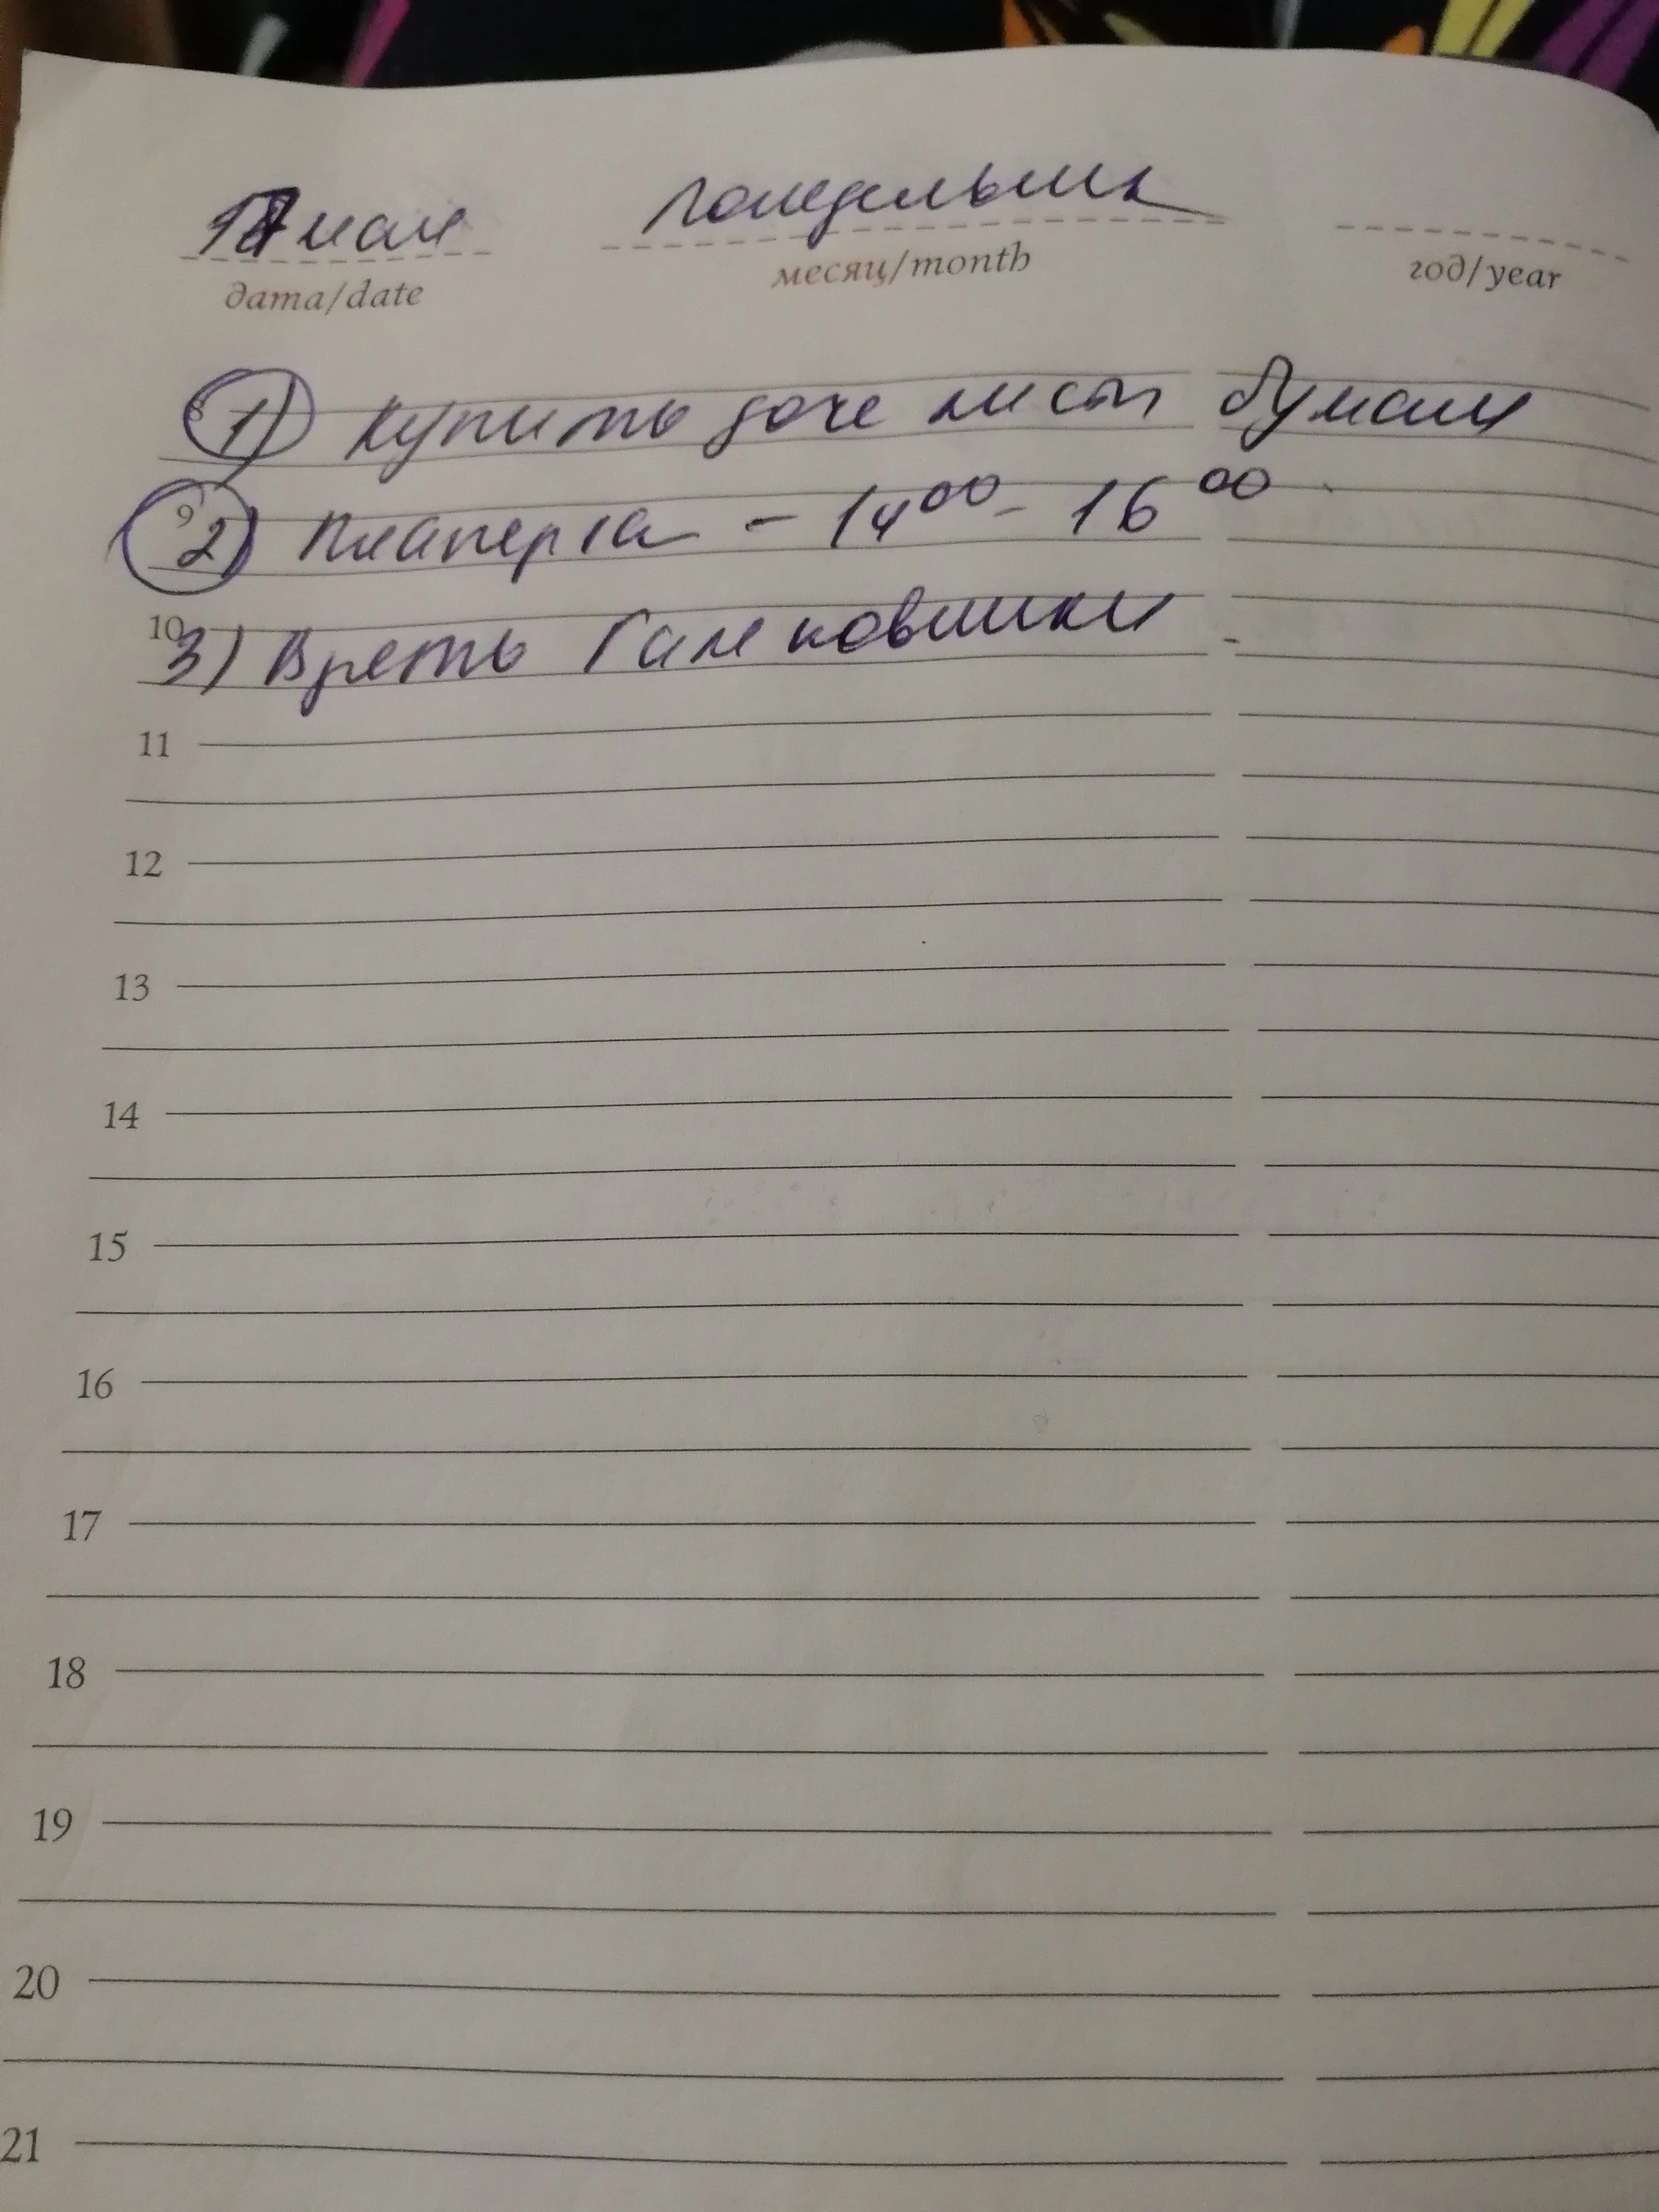 17 мая понедельник
дата/date месяц/month год/year
8 1) Купить доче листы бумаги
9 2) Планерка - 14 00 - 16 00
10 3) Взять Гале
11
12
13
14
15
16
17
18
19
20
21